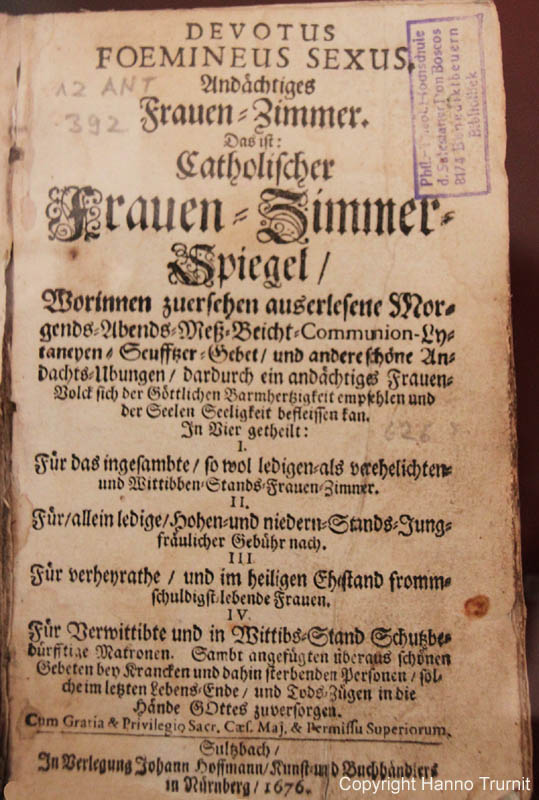 DEVOTUS
FOEMINEUS SEXUS.
Andächtiges
Frauen-Zimmer.
Das ist:
Catholischer
Frauen-Zimmer-
Spiegel/
Worinnen zuersehen auserlesene Mor-
gends-Abends-Meß-Beicht-Communion-Ly-
taneyen-Seufftzer-Gebet/ und andere schöne An-
dachts-Ubungen/ dardurch ein andächtiges Frauen-
Volck sich der Göttlichen Barmhertzigkeit empfehlen und
der Seelen Seeligkeit befleissen kan.
In Vier getheilt:
I.
Für das ingesambte/ so wol ledigen-als verehelichten-
und Wittibben-Stands-Frauen-Zimmer.
II.
Für/allein ledige/Hohen-und niedern-Stands-Jung-
fräulicher Gebühr nach.
III.
Für verheyrathe/ und im heiligen Ehestand fromm-
schuldigst lebende Frauen.
IV.
Für Verwittibte und in Wittibs-Stand Schutzbe-
dürfftige Matronen. Sambt angefügten überaus schönen
Gebeten bey Krancken und dahin sterbenden Personen/ sol-
che im letzten Lebens-Ende/ und Tods-Zügen in die
Hände GOttes zuversorgen.
Cum Gratia & Privilegio Sacr. Cæs. Maj. & Permissu Superiorum.
Sultzbach/
In Verlegung Johann Hoffmann/Kunst-und Buchhändlers
in Nürnberg/ 1676.
12 ANT
392
Phil.-Theol. Hochschule
d. Salesianer Don Boscos
8174 Benediktbeuern
Bibliothek
Copyright Hanno Trurnit